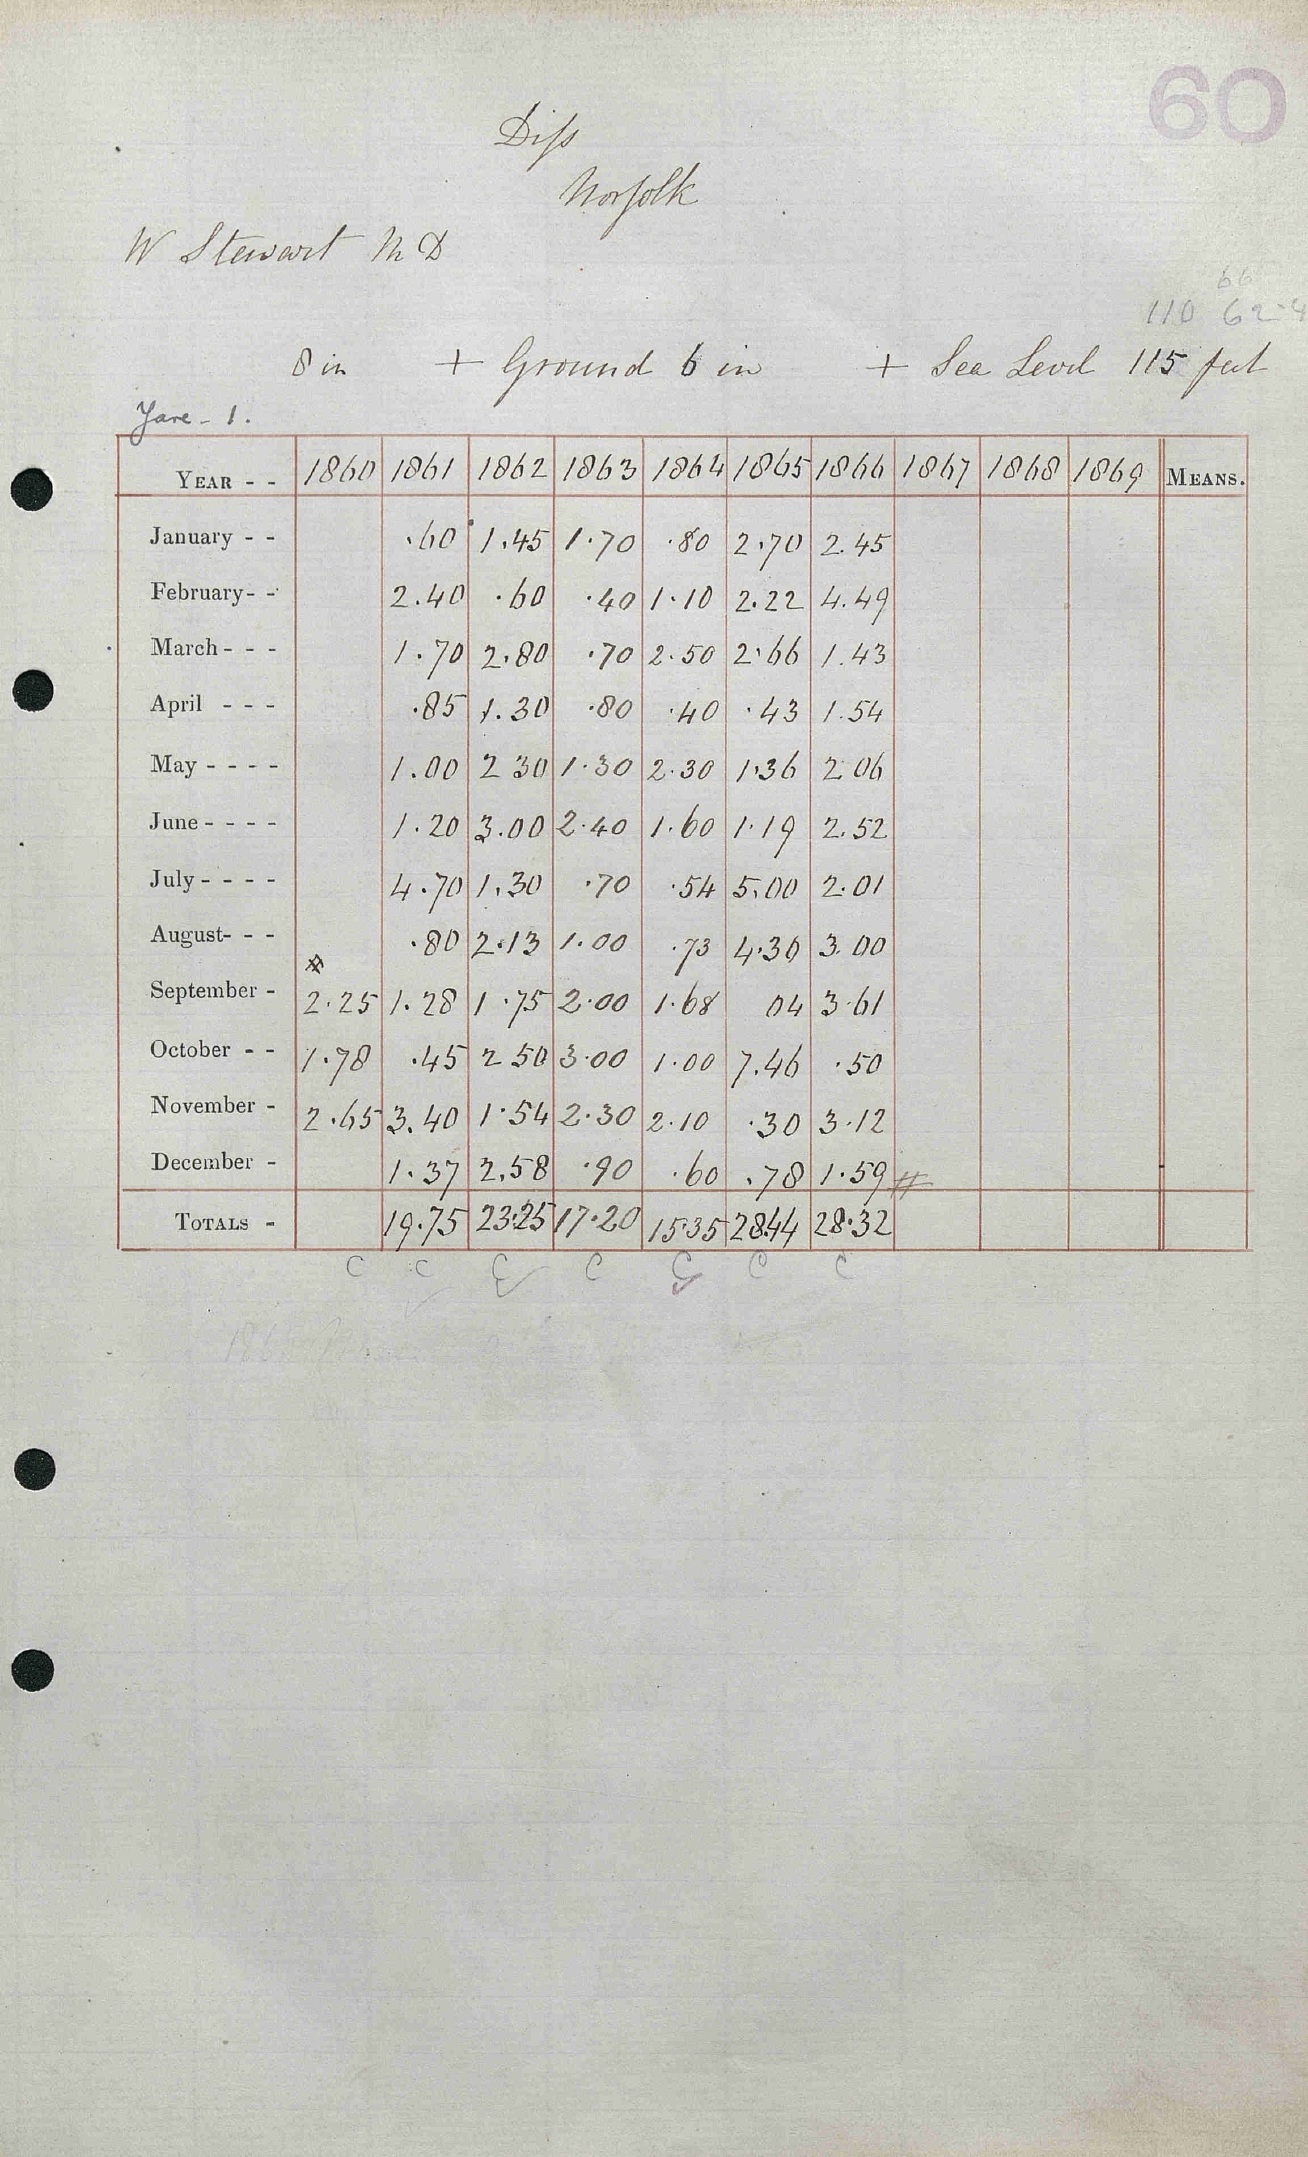 60
Diſs
Norfolk
W Stewart M D
66
110 62-4
8 in + Ground 6 in + Sea Level 115 feet
Yare - 1.
YEAR - - 1860 1861 1862 1863 1864 1865 1866 1867 1868 1869 MEANS.
January - - .60 1.45 1.70 .80 2.70 2.45
February - - 2.40 .60 .40 1.10 2.22 4.49
March - - - 1.70 2.80 .70 2.50 2.66 1.43
April - - - .85 1.30 .80 .40 .43 1.54
May - - - - 1.00 2 30 1.30 2.30 1.36 2 06
June - - - - 1.20 3.00 2.40 1.60 1.19 2.52
July - - - - 4.70 1.30 .70 .54 5.00 2.01
August - - - .80 2.13 1.00 .73 4.30 3.00
September - 2.25 1.28 1.75 2.00 1.68 04 3.61
October - - 1.78 .45 2 50 3.00 1.00 7.46 .50
November - 2.65 3.40 1.54 2.30 2.10 .30 3.12
December - 1.37 2.58 .90 .60 .78 1.59 #
TOTALS - 19.75 23.25 17.20 15.35 28.44 28.32
C C C C C C C